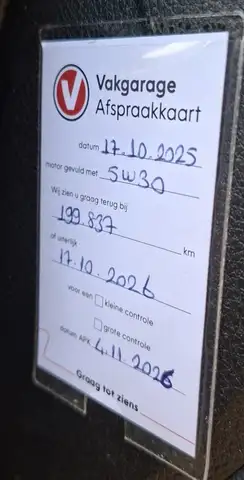 V
Vakgarage
Afspraakkaart
datum 17.10.2025
motor gevuld met 5W30
Wij zien u graag terug bij
199.837 km
of uiterlijk
17.10.2026
voor een kleine controle
grote controle
datum APK 4.11 2026
Graag tot ziens